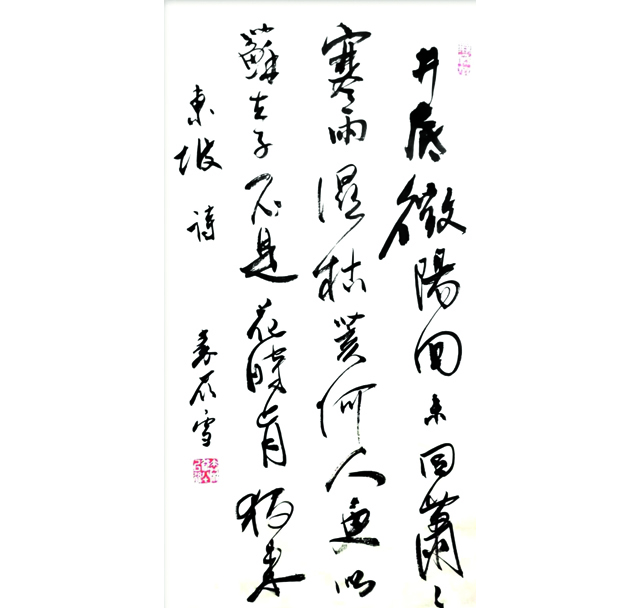 井底微陽回未回蕭々
寒雨濕枯荄何人更似
蘇夫子不是花時肯獨來
東坡詩
雪